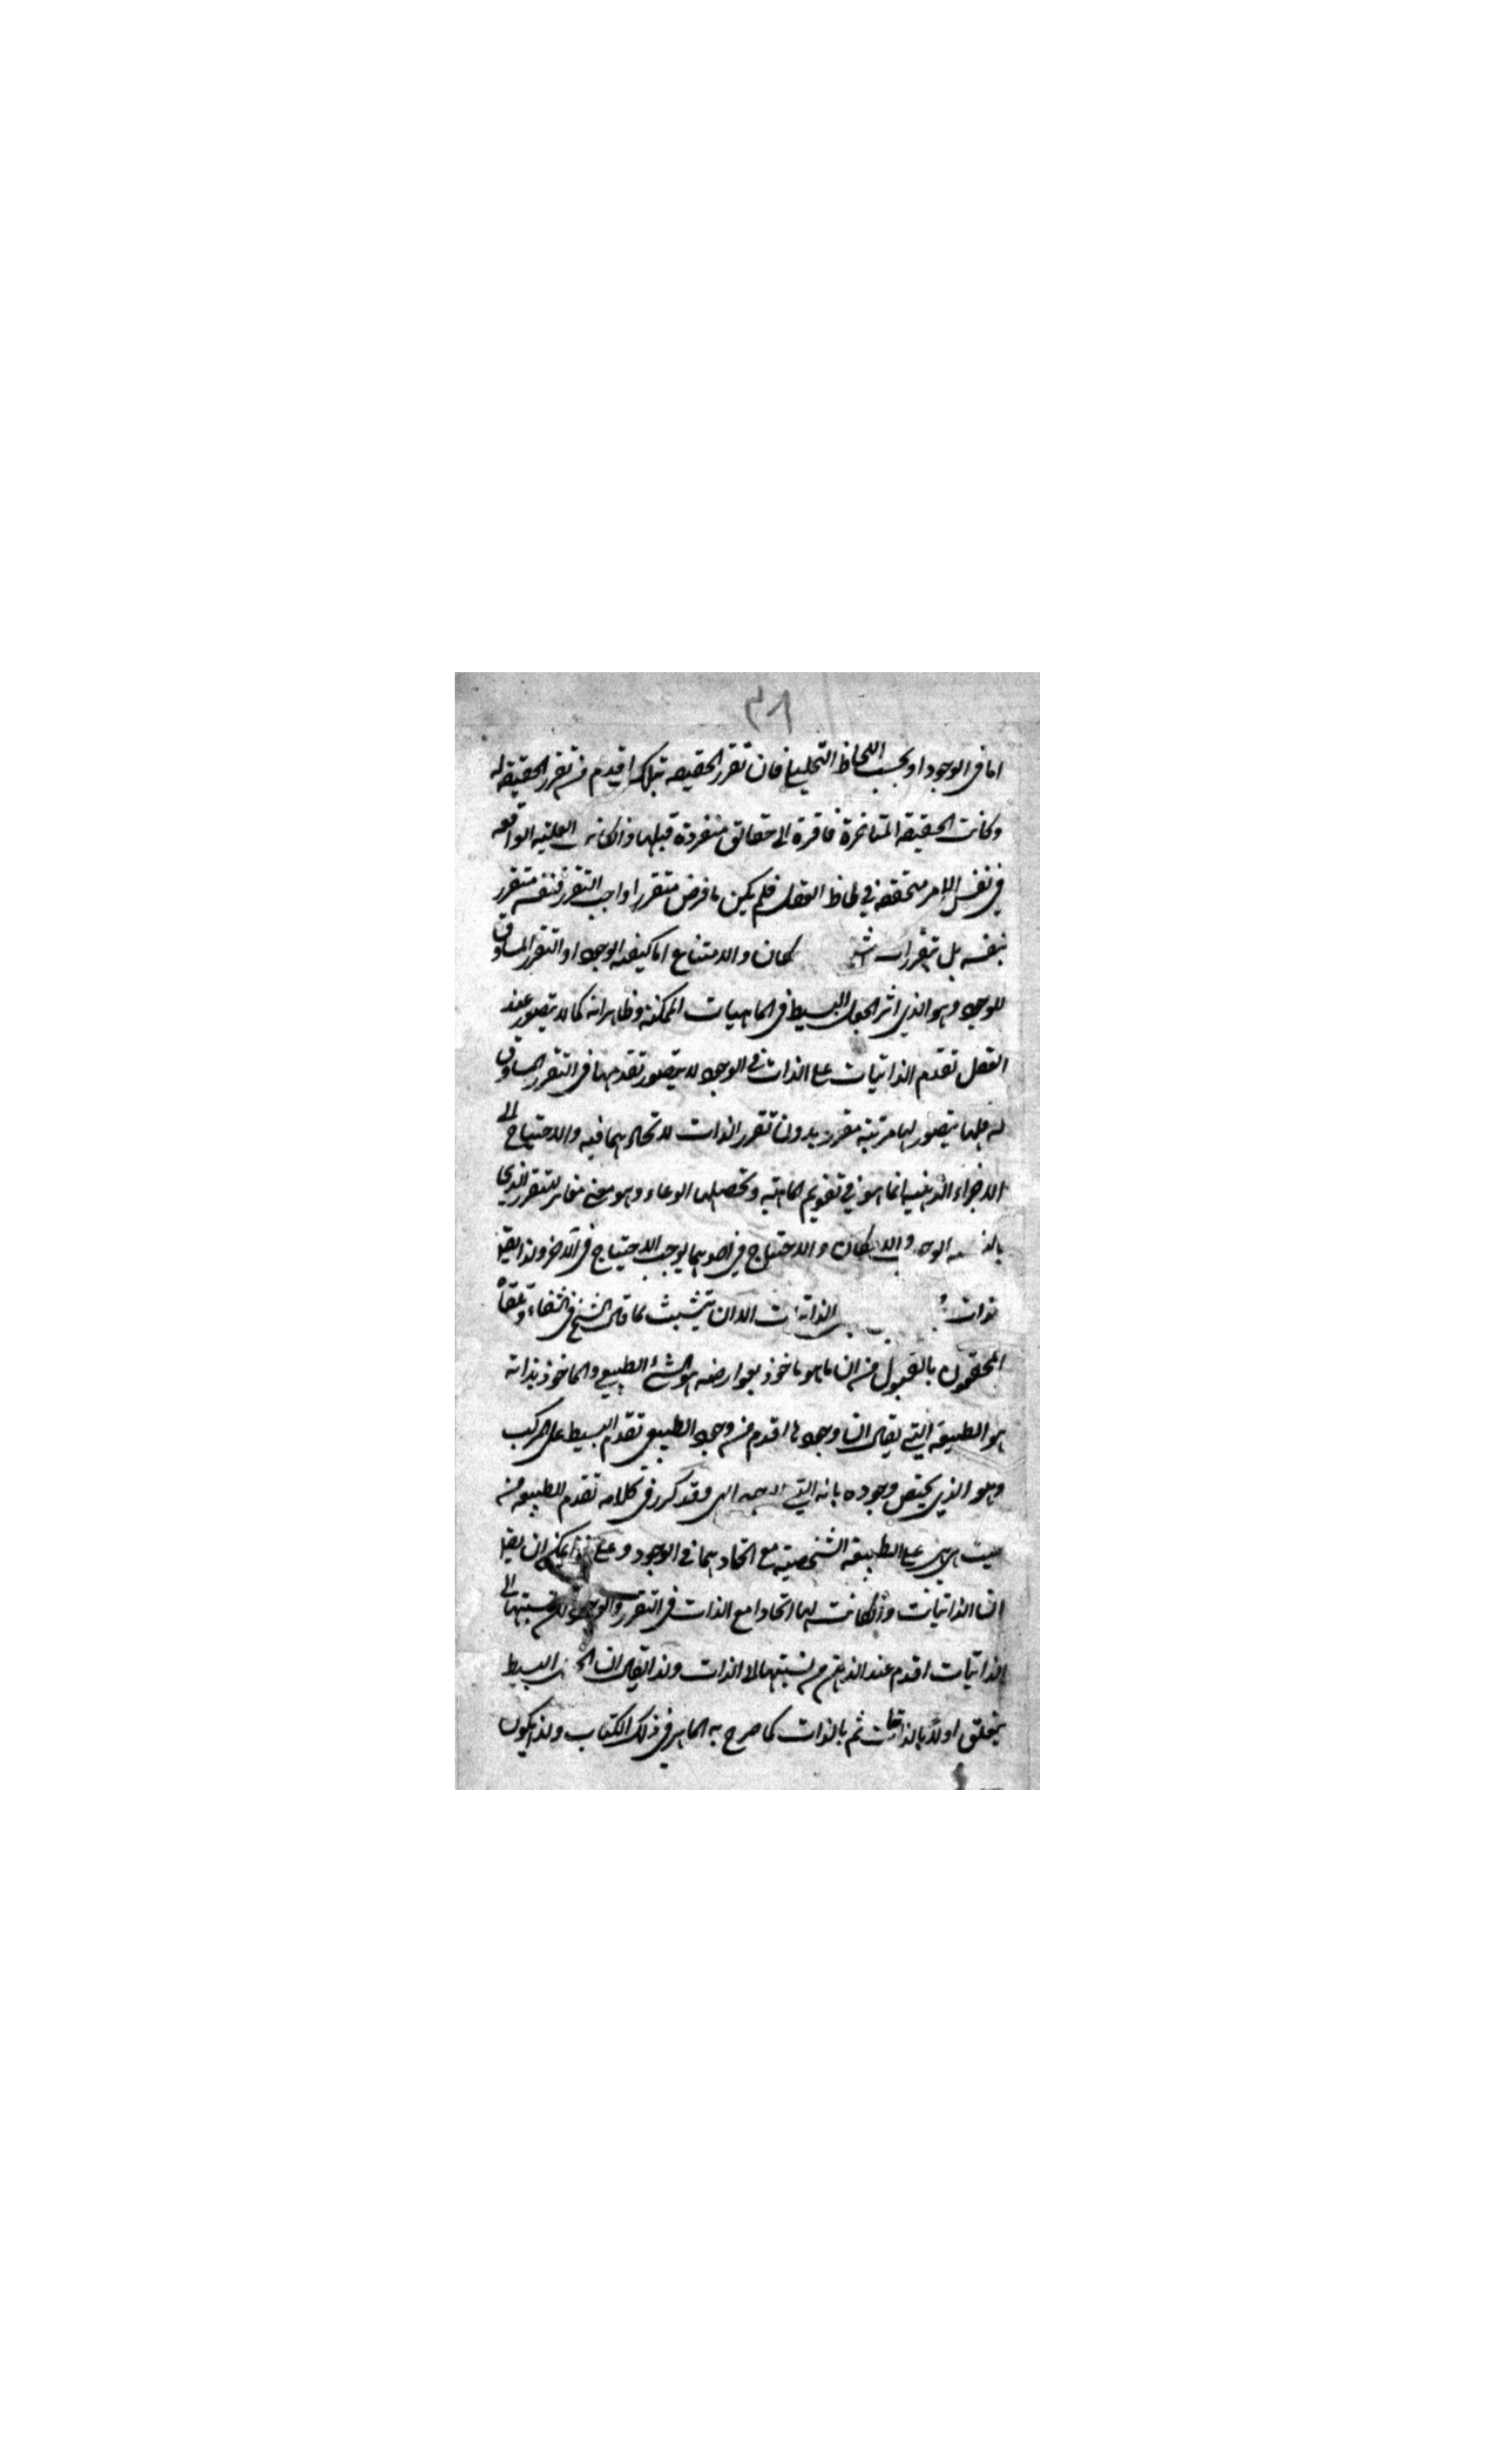 ٣٨
اما في الوجود او بحسب اللحاظ التحليلي فان تقرر الحقيقه تبلك اقدم من تقرر الحقيقه له
وكانت الحقيقه المتاخرة فاقرة الى حقائق منفردة قبلها واذ كانت العلية الواقعه
في نفس الامر متحققه في لحاظ العقل فلم يكن ما فرض متقررا واجب التقرر فنفسه متقرر
بنفسه بل تقررات والامتناع اما كيفيه الوجود او التقرر المساوق
للوجود وهو الذي اثر الجعل البسيط في الماهيات الممكنه وظاهر انه كما لا يتصور عند
العقل تقدم الذاتيات على الذات في الوجود لا يتصور تقدمها في التقرر المساوق
له فلها يتصور لها مرتبة مقرر بدون تقرر الذات لاتحادهما فيه والاحتياج الى
الاجزاء الذهنيه انما هو في تقويم الماهيه وتحصلها الوعاء وهو معنى مغاير للتقرر الذي
الوجوب والامكان والاحتياج في احدهما يوجب الاحتياج في الاخر ولذا يقال
الا ان يتشبث بما قال الشيخ في الشفاء وتلقاه
المحققون بالقبول من ان ما هو ماخوذ بعوارضه هو الشئ الطبيعي والماخوذ بذاته
هو الطبيعه التي يقال ان وجودها اقدم من وجود الطبيعي تقدم البسيط على المركب
وهو الذي يختص وجوده بانه الهي وقد كرر في كلامه تقدم الطبيعه من
حيث هي هي على الطبيعه الشخصيه مع اتحادهما في الوجود وعلى هذا يمكن ان يقال
ان الذاتيات وان كانت لها اتحادا مع الذات في التقرر والوجود لكن نسبتها الى
الذاتيات اقدم عند الذهن من نسبتها الى الذات ولذا يقال ان البسيط
يتعلق اولا بالذاتيات ثم بالذات كما صرح به الماهر في ذلك الكتاب ولذا يكون